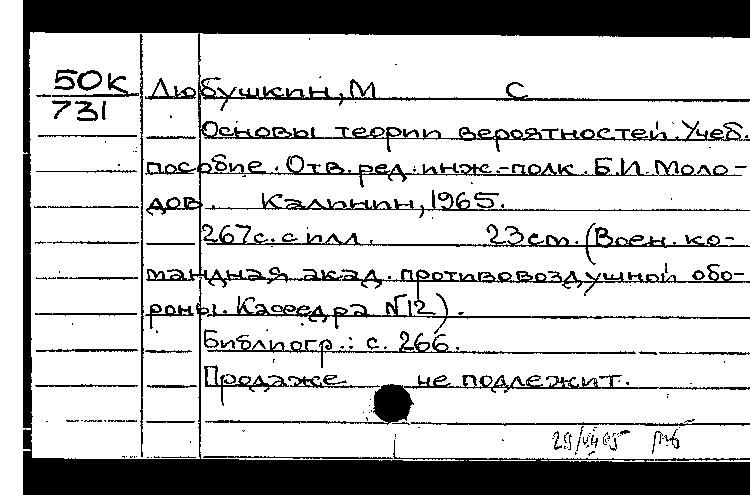 50К
731
Любушкин, М С
Основы теории вероятностей. Учеб.
пособие. Отв. ред. инж.-полк. Б.И. Моло-
дов. Калинин, 1965.
267с. с илл. 23cm. (Воен. ко-
мандная акад. противовоздушной обо-
роны. Кафедра №12).
Библиогр.: с. 266.
Продаже не подлежит.